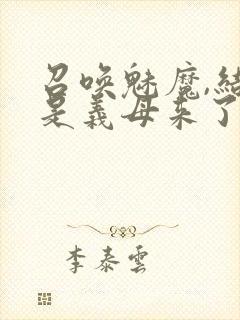 召唤魅魔,结
是義母来了
李泰雲